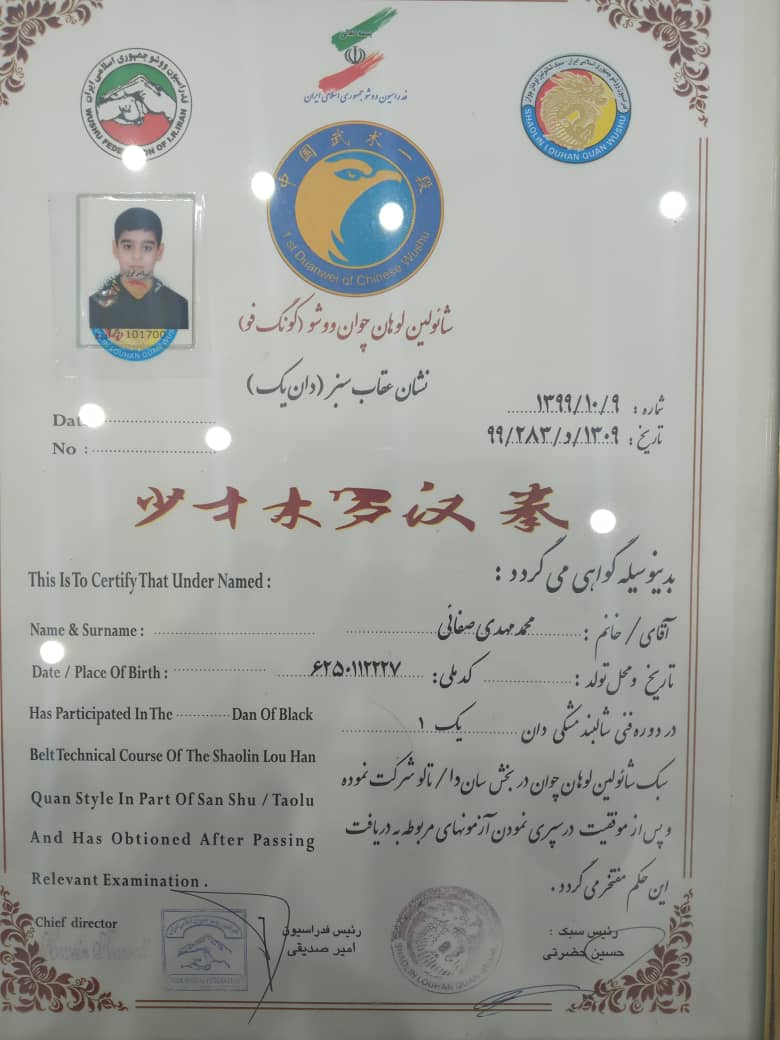 بسمه تعالی
فدراسیون ووشو جمهوری اسلامی ایران
فدراسیون ووشو جمهوری اسلامی ایران
WUSHU FEDERATION OF I.R.IRAN
SHAOLIN LOUHAN QUAN WUSHU
中国武术一段
1 st Duanwei of Chinese Wushu
101700
LOUHAN QUAN WU
شائولین لوهان چوان ووشو (گونگ فو)
نشان عقاب سبز (دان یک)
شماره : ۱۳۹۹/۱۰/۹
تاریخ : ۱۳۰۹/و/۹۹/۲۸۳
No :
少林罗汉拳
This Is To Certify That Under Named :
بدینوسیله گواهی می گردد :
Name & Surname :
آقای / خانم : محمد مهدی صفائی
Date / Place Of Birth :
تاریخ و محل تولد : کد ملی: ۶۲۵۰۱۱۲۲۲۷
Has Participated In The Dan Of Black
در دوره فنی شالبند مشکی دان یک ۱
Belt Technical Course Of The Shaolin Lou Han
سبک شائولین لوهان چوان در بخش سان دا / تالو شرکت نموده
Quan Style In Part Of San Shu / Taolu
و پس از موفقیت در سپری نمودن آزمونهای مربوطه به دریافت
And Has Obtioned After Passing
این حکم مفتخر می گردد .
Relevant Examination .
Chief director
رئیس فدراسیون
امیر صدیقی
رئیس سبک :
حسین حضرتی
SHAOLIN LOUHAN QUAN WUSHU